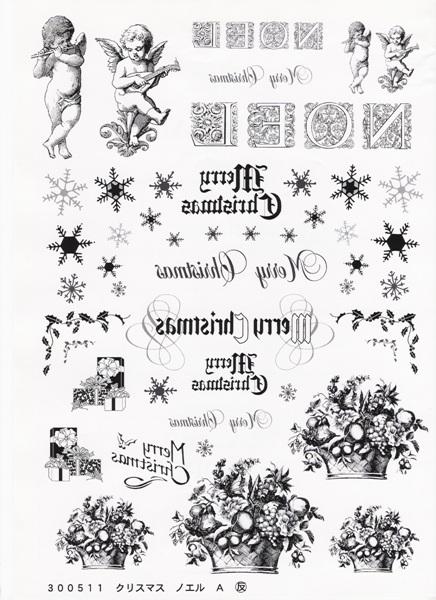 NOEL
Merry Christmas
NOEL
Merry
Christmas
Merry Christmas
Merry Christmas
Merry
Christmas
Merry Christmas
Merry
Christmas
300511 クリスマス ノエル A 反